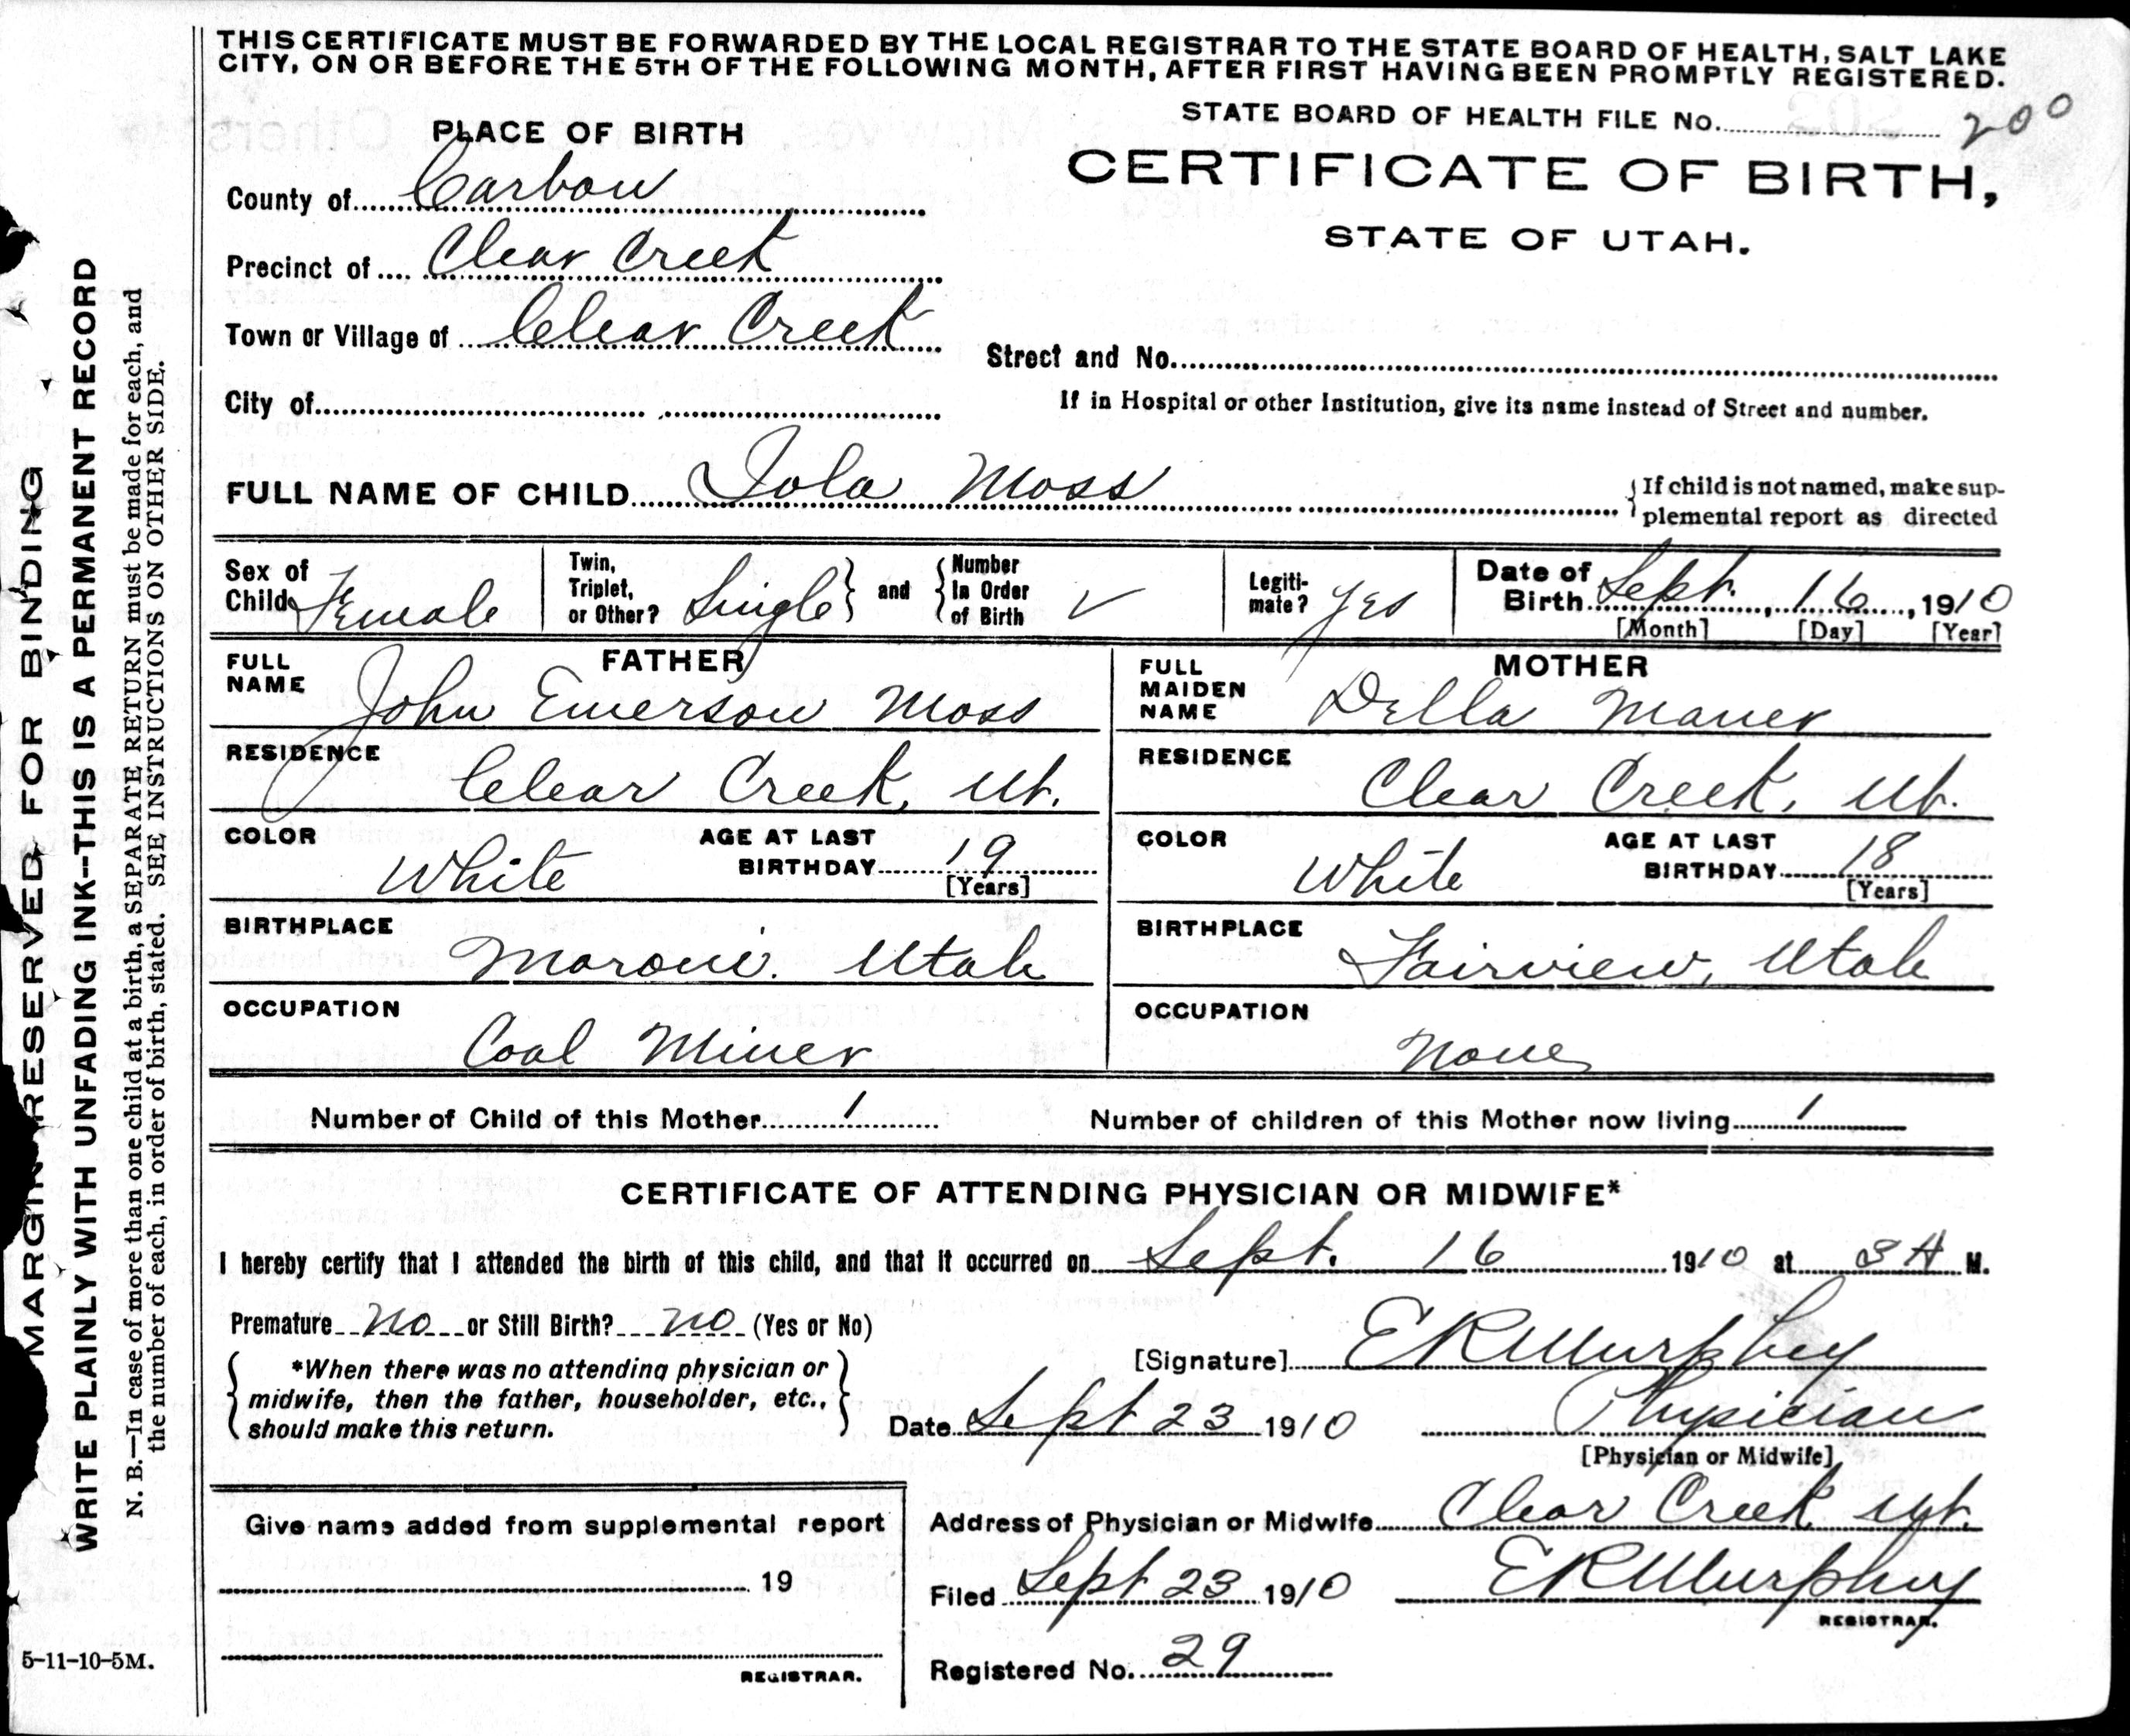 THIS CERTIFICATE MUST BE FORWARDED BY THE LOCAL REGISTRAR TO THE STATE BOARD OF HEALTH, SALT LAKE
CITY, ON OR BEFORE THE 5TH OF THE FOLLOWING MONTH, AFTER FIRST HAVING BEEN PROMPTLY REGISTERED.
STATE BOARD OF HEALTH FILE No. 200
PLACE OF BIRTH
CERTIFICATE OF BIRTH,
STATE OF UTAH.
County of Carbon
Precinct of Clear Creek
Town or Village of Clear Creek
Street and No.
City of
If in Hospital or other Institution, give its name instead of Street and number.
FULL NAME OF CHILD Iola Moss
If child is not named, make sup-
plemental report as directed
Sex of
Child Female
Twin,
Triplet,
or Other? Single
and
Number
In Order
of Birth
Legiti-
mate? Yes
Date of
Birth Sept. 16, 1910
[Month] [Day] [Year]
FATHER
FULL
NAME John Emerson Moss
RESIDENCE
Clear Creek, Ut.
COLOR
White
AGE AT LAST
BIRTHDAY 19
[Years]
BIRTHPLACE
Moroni. Utah
OCCUPATION
Coal Miner
MOTHER
FULL
MAIDEN
NAME Della Mauer
RESIDENCE
Clear Creek, Ut.
COLOR
White
AGE AT LAST
BIRTHDAY 18
[Years]
BIRTHPLACE
Fairview, Utah
OCCUPATION
None
Number of Child of this Mother 1
Number of children of this Mother now living 1
CERTIFICATE OF ATTENDING PHYSICIAN OR MIDWIFE*
I hereby certify that I attended the birth of this child, and that it occurred on Sept. 16 1910 at 3 A M.
Premature no or Still Birth? no (Yes or No)
*When there was no attending physician or
midwife, then the father, householder, etc.,
should make this return.
[Signature] E R Murphy
Date Sept 23 1910
Physician
[Physician or Midwife]
Address of Physician or Midwife Clear Creek Ut.
Give name added from supplemental report
19
REGISTRAR.
Filed Sept 23 1910
E R Murphy
REGISTRAR.
Registered No. 29
MARGIN RESERVED FOR BINDING
WRITE PLAINLY WITH UNFADING INK--THIS IS A PERMANENT RECORD
N. B.—In case of more than one child at a birth, a SEPARATE RETURN must be made for each, and
the number of each, in order of birth, stated. SEE INSTRUCTIONS ON OTHER SIDE.
5-11-10-5M.